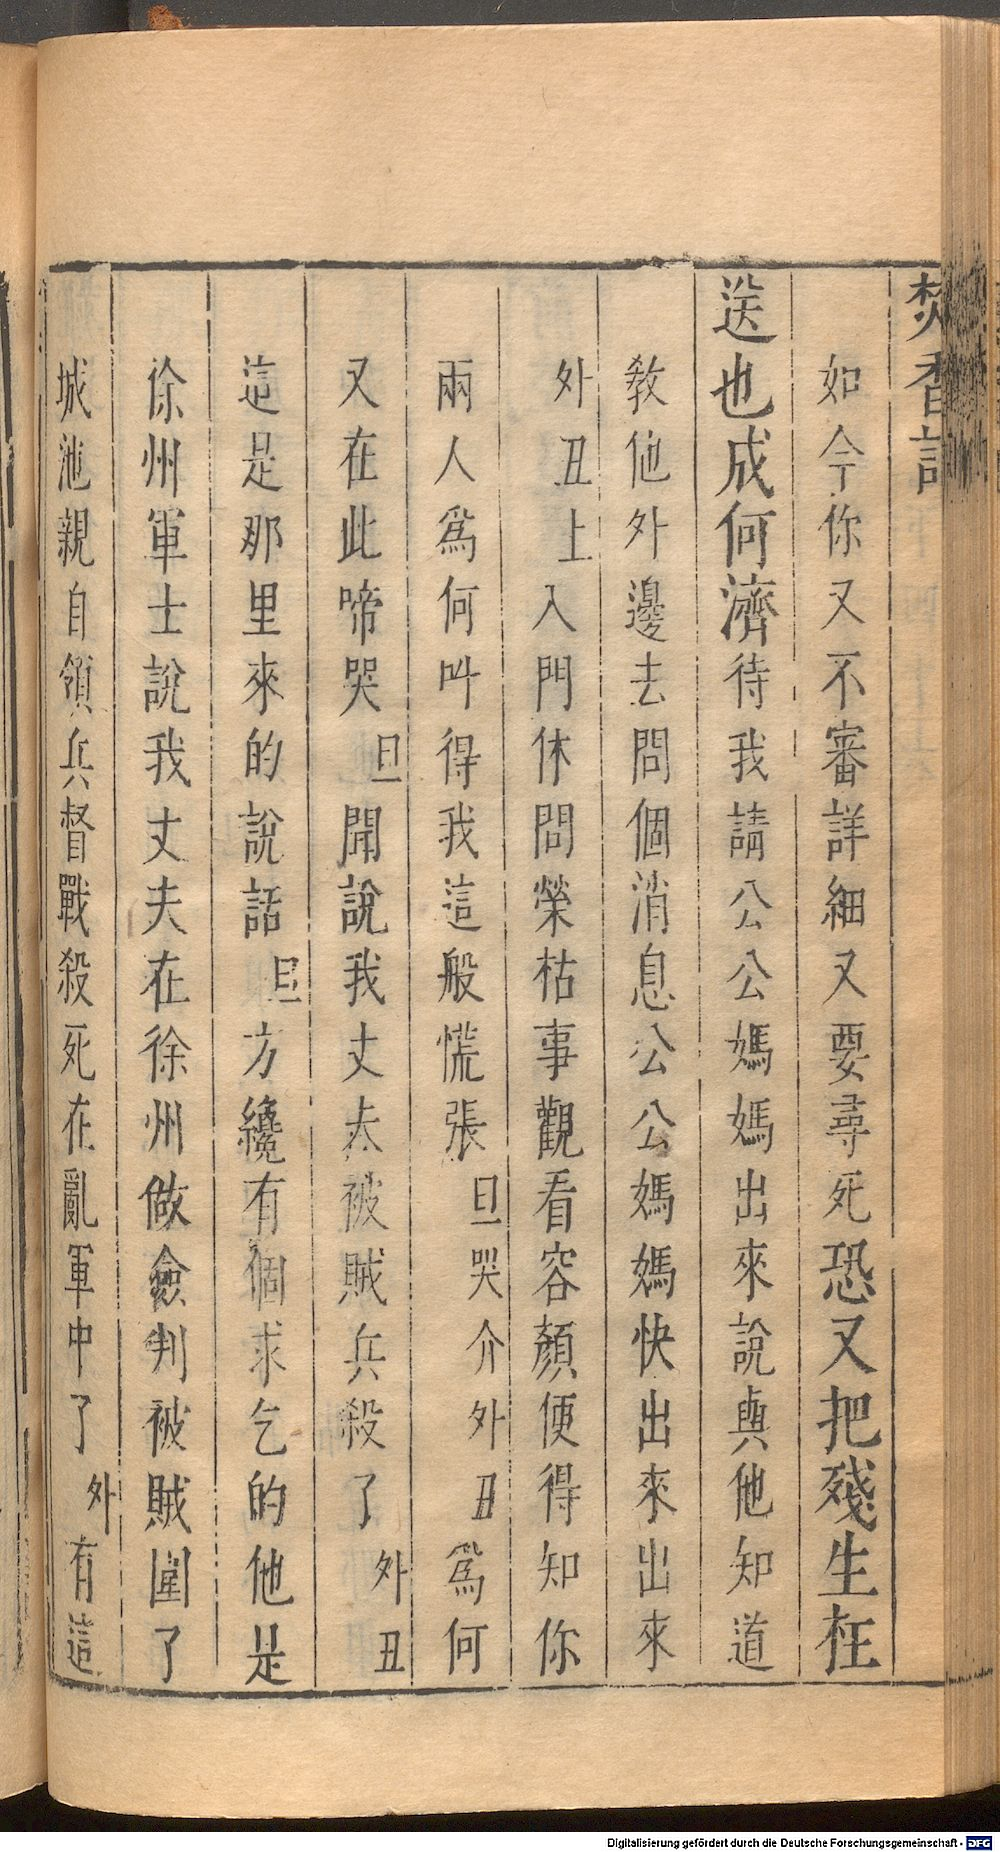 焚香記
如今你又不審詳細又要尋死恐又把殘生枉
送也成何濟待我請公公媽媽出來說與他知道
教他外邊去問個消息公公媽媽快出來出來
外丑上入門休問榮枯事觀看容顏便得知你
兩人爲何叫得我這般慌張旦哭介外丑爲何
又在此啼哭旦聞說我丈夫被賊兵殺了外丑
這是那里來的說話旦方纔有個求乞的他是
徐州軍士說我丈夫在徐州做僉判被賊圍了
城池親自領兵督戰殺死在亂軍中了外有這
Digitalisierung gefördert durch die Deutsche Forschungsgemeinschaft - DFG